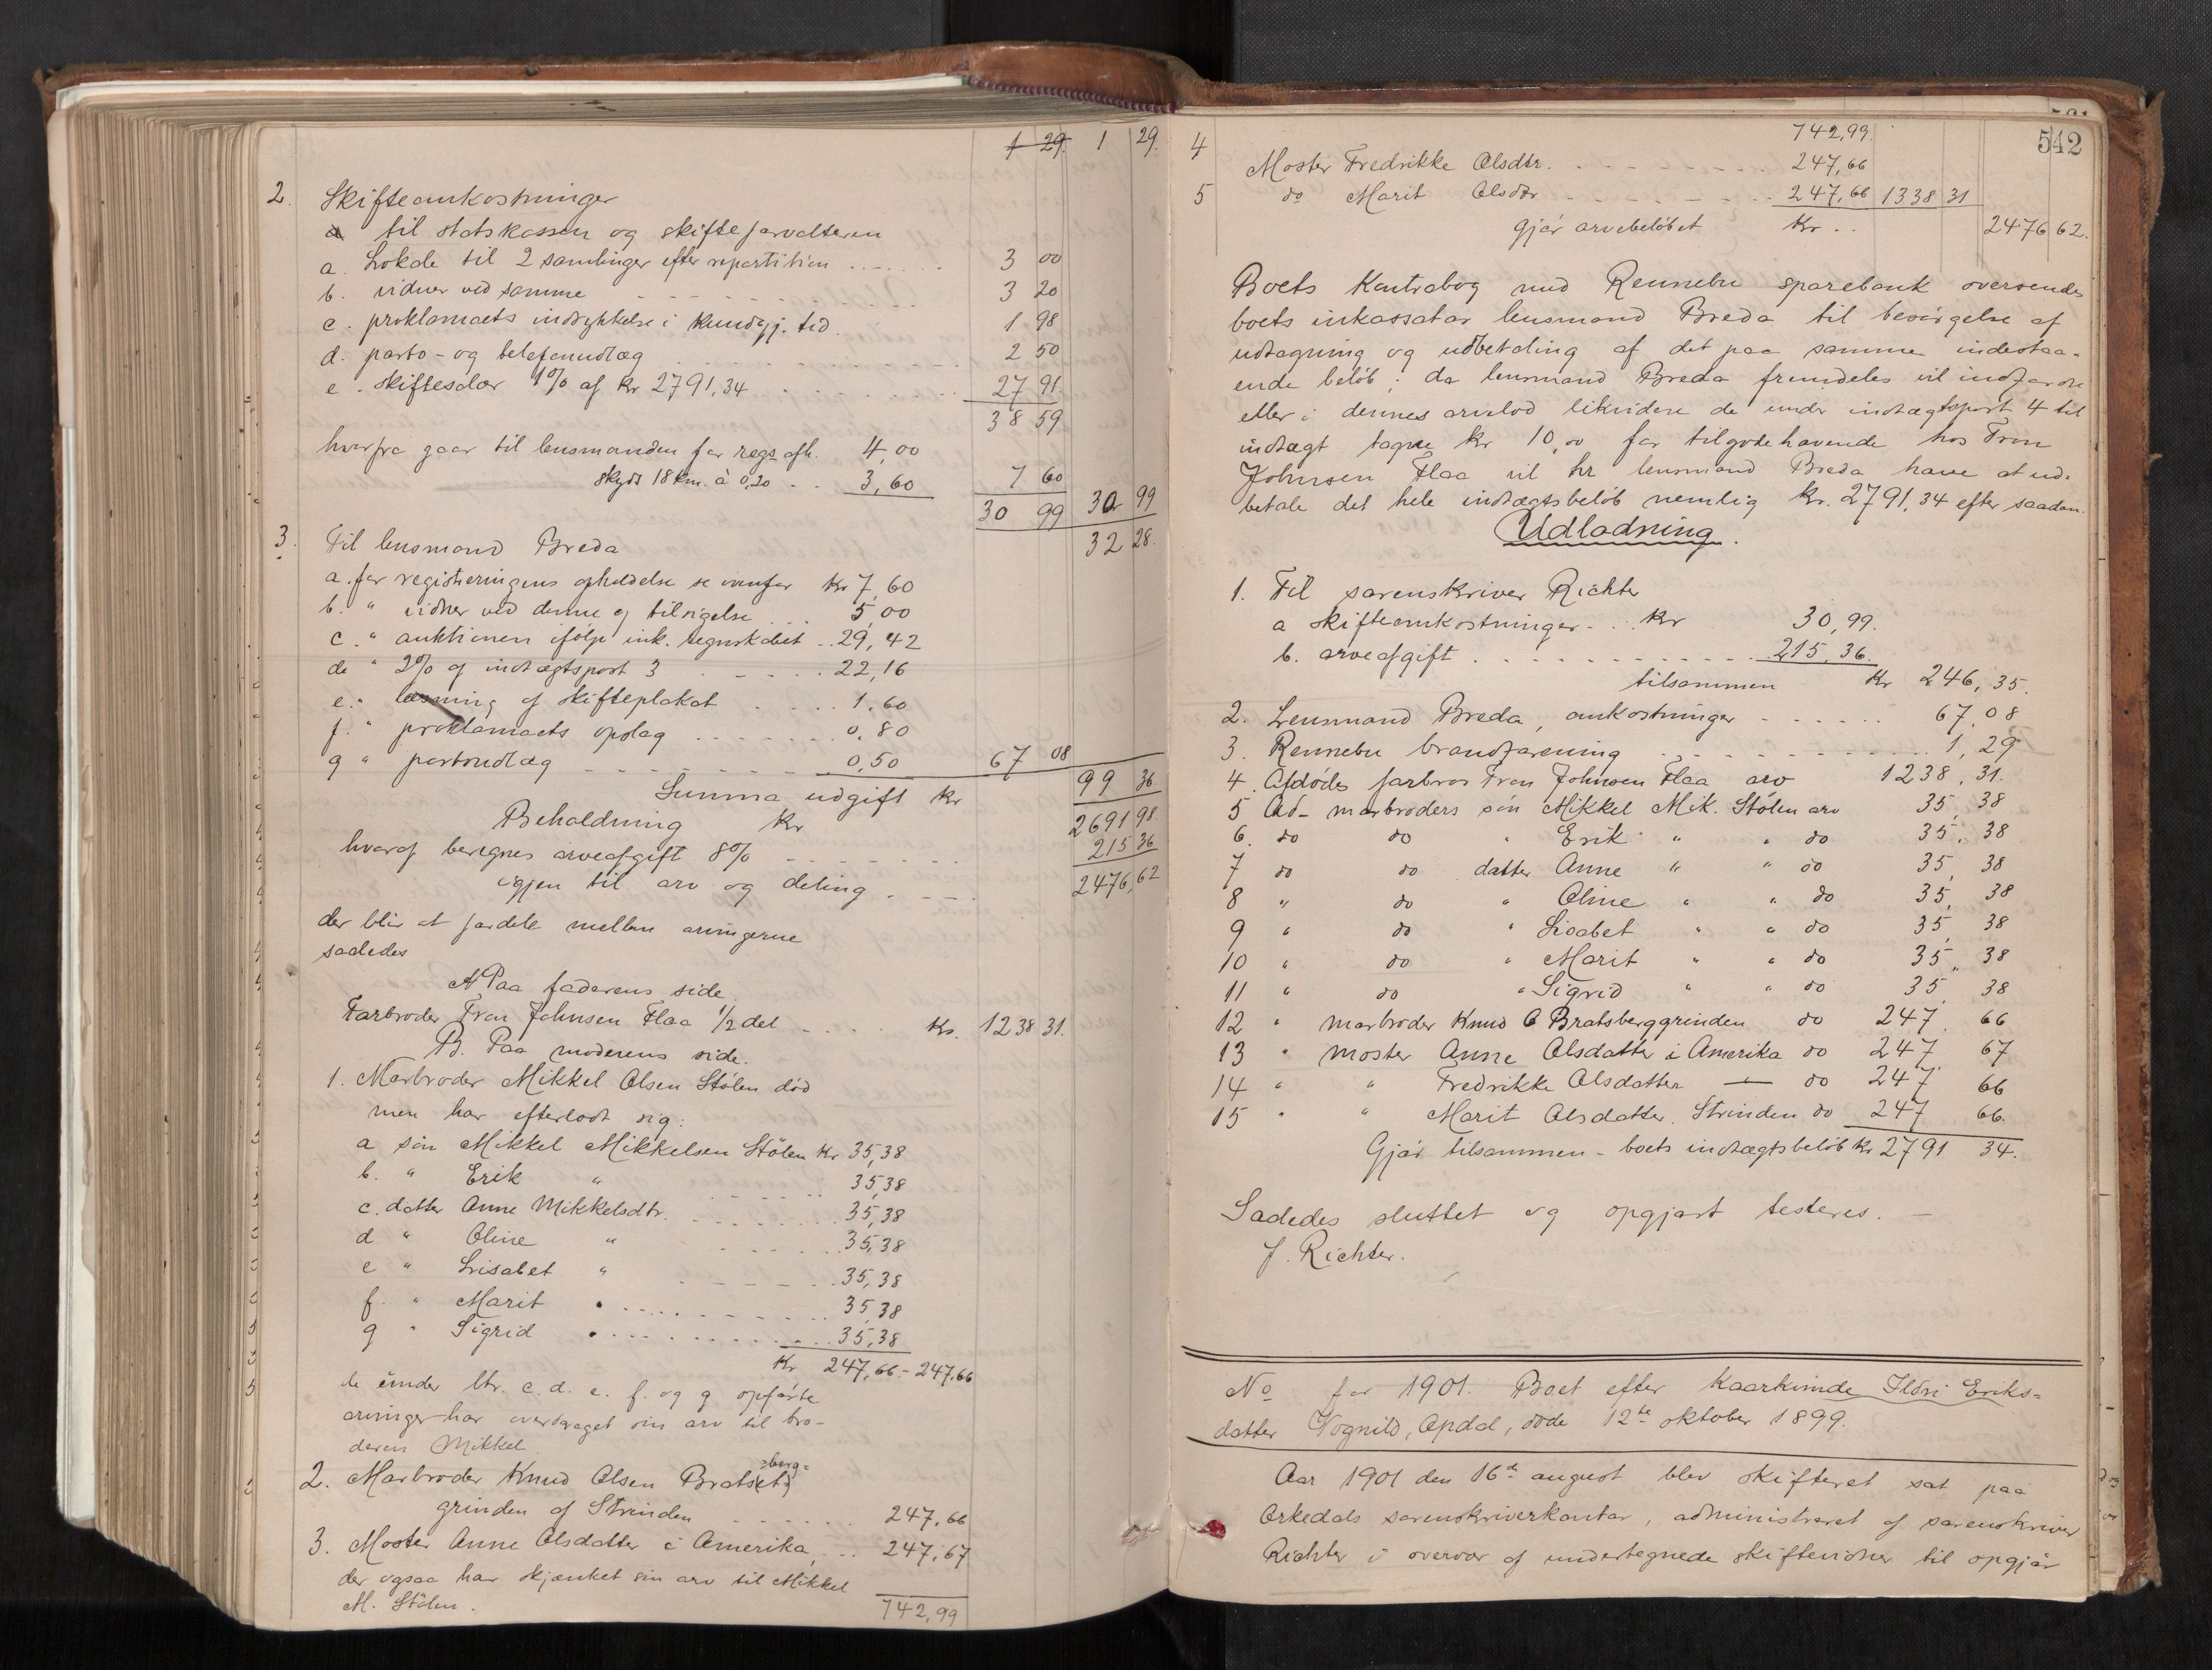 1 29. 1 29.
2. Skifteomkostninger
a til statskassen og skifteforvalteren
a. Lokale til 2 samlinger efter repartition 3 00
b. vidner ved samme 3 20
c. proklamaets indrykkelse i Kundgj. tid. 1 98
d. porto- og telefonudlæg 2 50
e. skiftesalær 1% af kr 2791,34 27 91.
38 59
hvorfra gaar til lensmanden for regs. afh. 4,00
skyds 18 km. à 0,20 3,60 7 60
30 99 30 99
32 28.
3. Til lensmand Breda
a. for registreringens afholdelse se ovenfor kr 7,60
b. " vidner ved denne og tilsigelse 5,00
c. " auktionen ifølge ink. regnskabet 29,42
d. " 2% af indtægtspost 3 22,16
e. " læsning af skifteplakat 1,60
f. " proklamaets opslag 0,80
g " portoudlæg 0,50 67 08
Summa udgift kr 99 36
Beholdning kr 2691 98
hvoraf beregnes arveafgift 8% 215 36
igjen til arv og deling 2476,62
der blir at fordele mellem arvingerne
saaledes
A Paa faderens side.
Farbroder Tron Johnsen Flaa 1/2 del Kr. 1238 31.
B. Paa moderens side.
1. Morbroder Mikkel Olsen Stølen død
men har efterladt sig:
a søn Mikkel Mikkelsen Stølen kr 35,38
b. " Erik " 35,38
c. datter Anne Mikkelsdtr. 35,38
d " Oline " 35,38
e " Lisabet " 35,38
f. " Marit " 35,38
g " Sigrid " 35,38
Kr 247,66 - 247,66
de under ltr. c. d. e. f. og g opførte
arvinger har overdraget sin arv til bro-
deren Mikkel.
2. Morbroder Knud Olsen Bratsberg=
grinden af Strinden 247,66
3. Moster Anne Olsdatter i Amerika, 247,67
der ogsaa har skjænket sin arv til Mikkel
M. Stølen. 742,99
542
742,99.
4 Moster Fredrikke Olsdtr. 247,66
5 do Marit Olsdtr 247,66 1338 31
gjør arvebeløbet Kr. 2476 62.
Boets Kontrabog med Rennebu sparebank oversendes
boets inkassator lensmand Breda til besørgelse af
udtagning og udbetaling af det paa samme indestaa-
ende beløb; da lensmand Breda fremdeles vil indfordre
eller i dennes arvelod likvidere de under indtægtspost 4 til
indtægt tagne kr 10,00 for tilgodehavende hos Tron
Johnsen Flaa vil hr lensmand Breda have at ud-
betale det hele indtægtsbeløb nemlig kr. 2791,34 efter saadan
Udlodning.
1. Til sorenskriver Richter
a skifteomkostninger kr 30,99.
b. arveafgift 215,36.
tilsammen Kr 246,35.
2. Lensmand Breda, omkostninger 67,08
3. Rennebu brandforening 1,29
4. Afdødes farbror Tron Johnsen Flaa arv 1238,31.
5 Ad- morbroders søn Mikkel Mik. Stølen arv 35,38
6. do do " Erik " " do 35,38
7 do do datter Anne " " do 35,38
8 " do " Oline " " do 35,38
9 " do " Lisabet " " do 35,38
10 " do " Marit " " do 35,38
11 " do " Sigrid " " do 35,38
12 " morbroder Knud O Bratsberggrinden do 247,66
13 " moster Anne Olsdatter i Amerika do 247 67
14 " " Fredrikke Olsdatter — do 247 66
15 " " Marit Olsdatter. Strinden do 247 66.
Gjør tilsammen - boets indtægtsbeløb kr 2791 34.
Saaledes sluttet og opgjort testeres. —
J. Richter.
No for 1901. Boet efter kaarkvinde Ildri Eriks=
datter Vognild, Opdal, døde 12te oktober 1899.
Aar 1901 den 16de august blev skifteret sat paa
Orkedals sorenskriverkontor, administreret af sorenskriver
Richter i overvær af undertegnede skiftevidner til opgjør